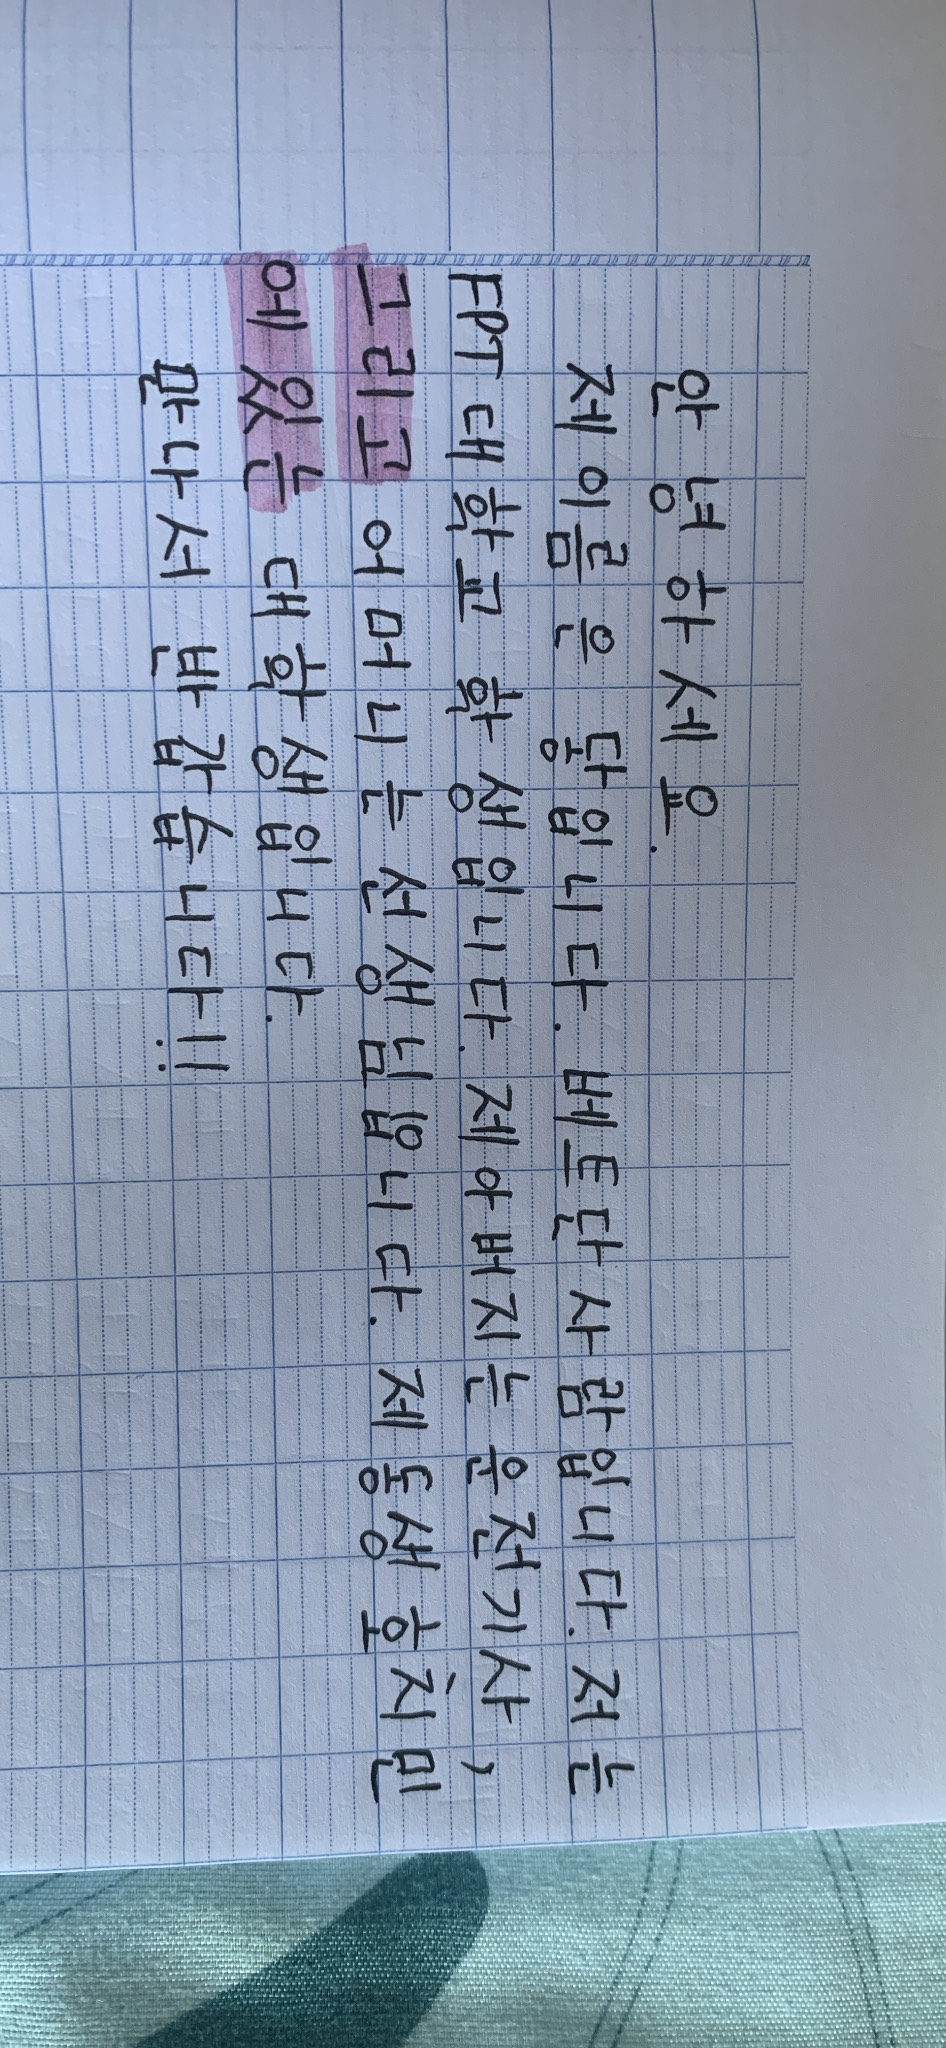 안녕하세요.
제 이름은 댱입니다. 베트단 사람입니다. 저는
FPT 대학교 학생입니다. 제 아버지는 운전기사,
그리고 어머니는 선생님입니다. 제 동생 호치민
에 있는 대학생입니다.
만나서 반갑습니다!!